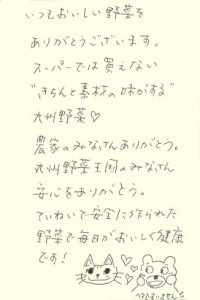 いつもおいしい野菜を
ありがとうございます。
スーパーでは買えない
"きちんと素材の味がする"
九州野菜♡
農家のみなさんありがとう。
九州野菜王国のみなさん
安心をありがとう。
ていねいで安全に作られた
野菜で毎日がおいしく健康
です！
ヘタですいません